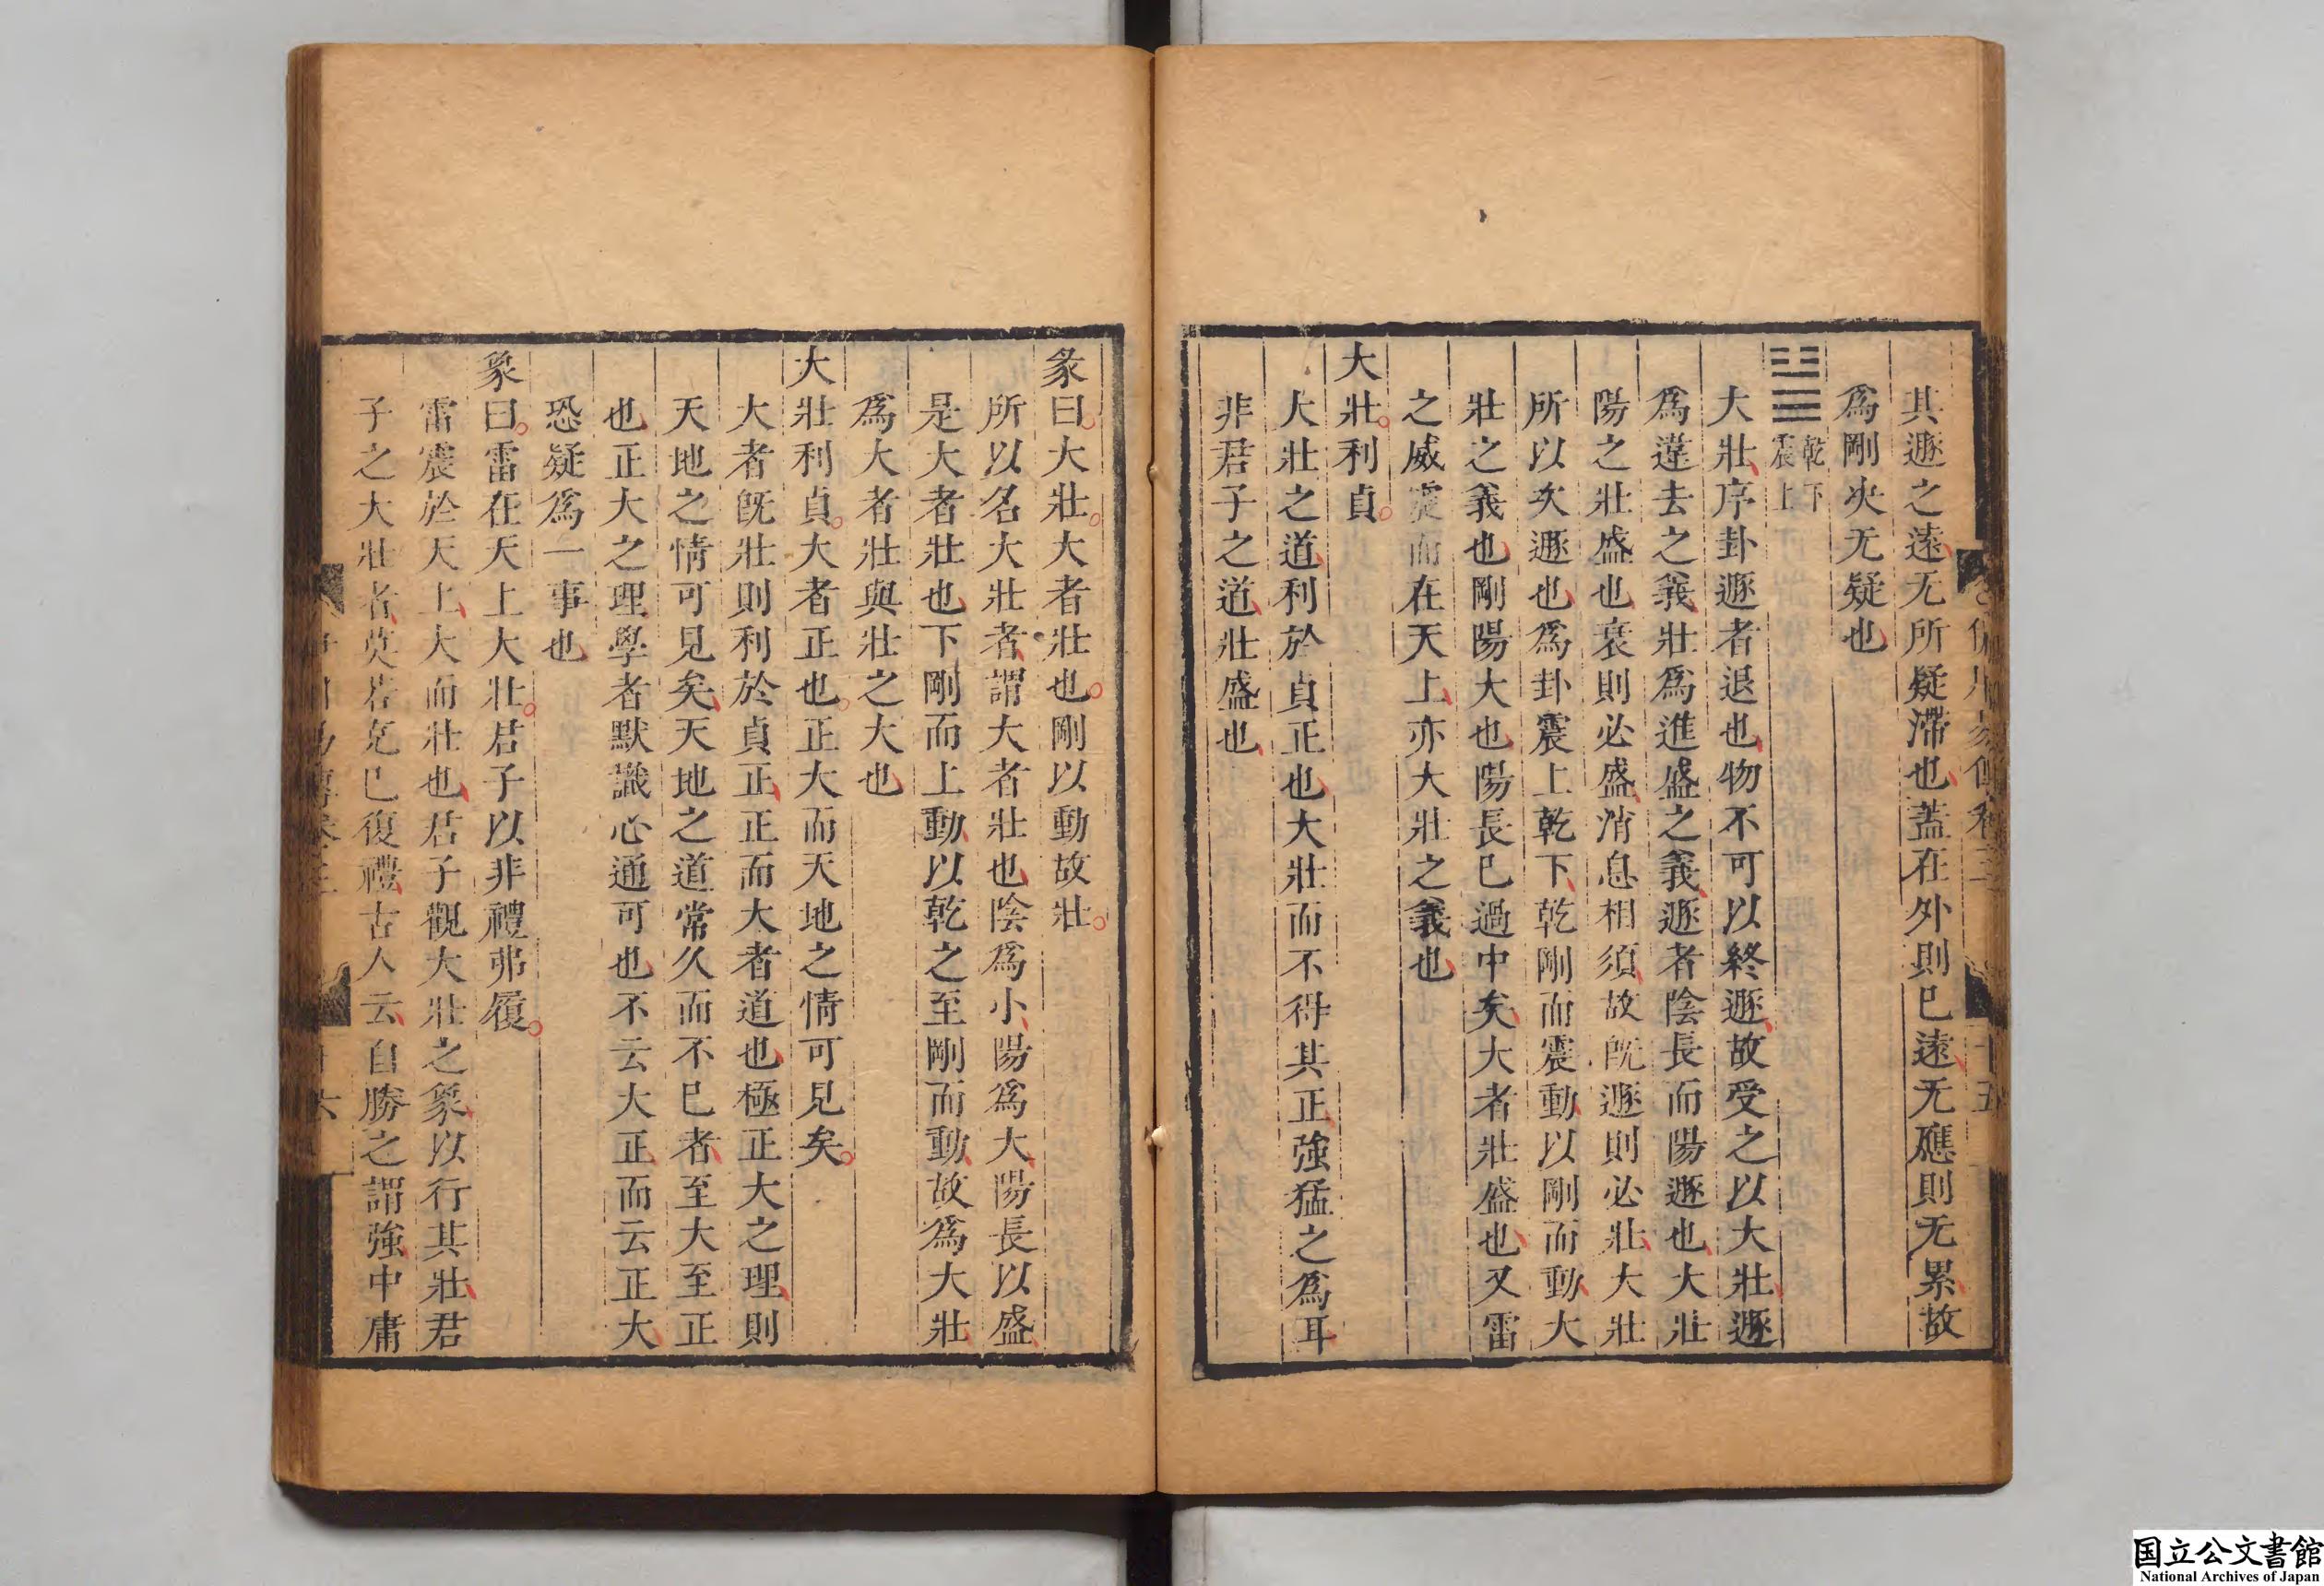 其遯之遠无所疑滯也蓋在外則已遠无應則无累故
爲剛決无疑也
乾下
震上
大壯序卦遯者退也物不可以終遯故受之以大壯遯
爲違去之義壯爲進盛之義遯者陰長而陽遯也大壯
陽之壯盛也衰則必盛消息相須故旣遯則必壯大壯
所以次遯也爲卦震上乾下乾剛而震動以剛而動大
壯之義也剛陽大也陽長已過中矣大者壯盛也又雷
之威震而在天上亦大壯之義也
大壯利貞
大壯之道利於貞正也大壯而不得其正強猛之爲耳
非君子之道壯盛也
彖曰大壯大者壯也剛以動故壯
所以名大壯者謂大者壯也陰爲小陽爲大陽長以盛
是大者壯也下剛而上動以乾之至剛而動故爲大壯
爲大者壯與壯之大也
大壯利貞大者正也正大而天地之情可見矣
大者旣壯則利於貞正正而大者道也極正大之理則
天地之情可見矣天地之道常久而不已者至大至正
也正大之理學者默識心通可也不云大正而云正大
恐疑爲一事也
象曰雷在天上大壯君子以非禮弗履
雷震於天上大而壯也君子觀大壯之象以行其壯君
子之大壯者莫若克已復禮古人云自勝之謂強中庸
国立公文書館
National Archives of Japan